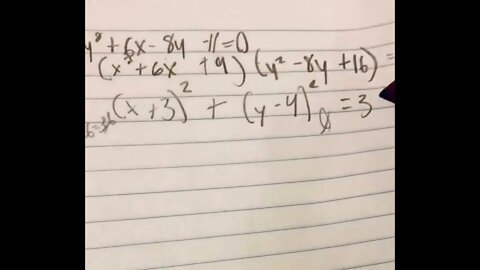 y² + 6x - 8y - 11 = 0
(x² + 6x + 9) (y² - 8y + 16) =
(x + 3)² + (y - 4)² = 3